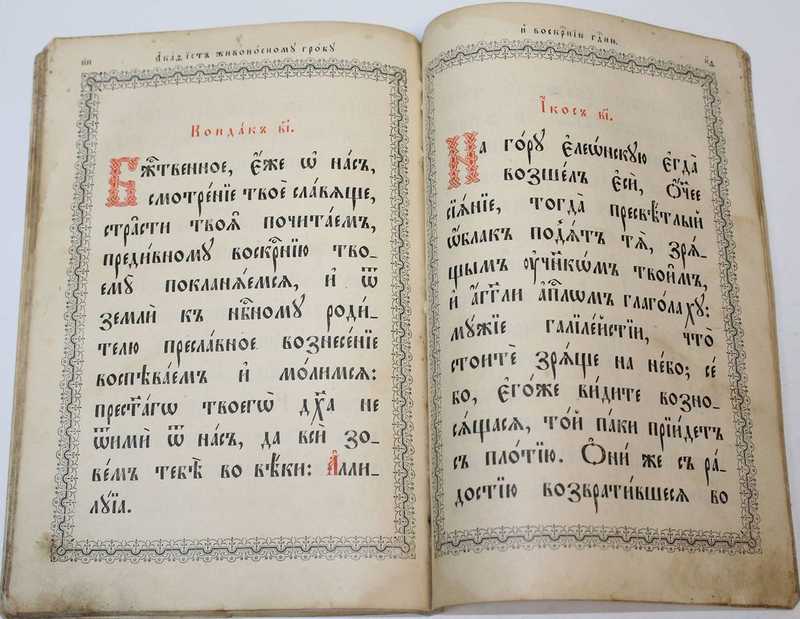 н҃и
Акаѳістъ живоносному гробу
Кондакъ в҃і.
Бж҃твенное, є҆́же ѡ҆ на́съ,
смотре́нїе твоѐ сла́вѧще,
стра̑сти твоѧ̑ почита́емъ,
преди́вному воскрⷭ҇нїю тво-
емꙋ̀ покланѧ́емсѧ, и҆ ѿ
землѝ къ нбⷭ҇ному роди́-
телю пресла́вное вознесе́нїе
воспѣва́емъ и҆ мо́лимсѧ:
прест҃а́гѡ твоегѡ̀ дх҃а не
ѿимѝ ѿ на́съ, да всѝ зо-
ве́мъ тебѣ̀ во вѣ́ки: А҆лли-
лꙋ́їа.
и҆ воскрⷭ҇нїю гдⷭ҇ни.
І҆́косъ в҃і.
На го́рꙋ є҆леѡ́нскую є҆гда̀
возше́лъ є҆сѝ, ѻ҆́ч҃ее
сїѧ́нїе, тогда̀ пресвѣ́тлый
ѡ҆́блакъ под̾ѧ́тъ тѧ̀, зрѧ́-
щымъ ᲂу҆чн҃кѡ́мъ твои̑мъ,
и҆ а҆́гг҃ли а҆пⷭ҇лѡмъ глаго́лахꙋ:
мꙋ́жїе галїле́йстїи, что̀
стоитѐ зрѧ́ще на не́бо; се́
бо, є҆го́же ви́дите возно-
сѧ́щасѧ, то́й па́ки прїи́детъ
съ пло́тїю. Ѻ҆ни́ же съ ра́-
достїю возврати́вшесѧ во